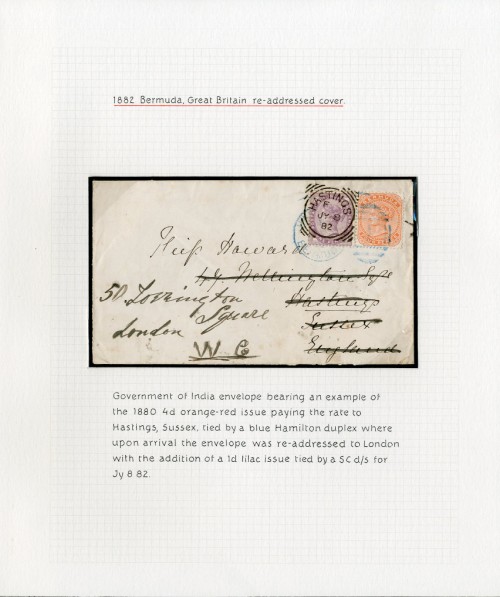 1882 Bermuda, Great Britain re-addressed cover.
HASTINGS
F
JY 8
82
Miss Howard
47 Wellington Sqre
Hastings
Sussex
England
50 Torrington
Square
London
W C
Government of India envelope bearing an example of
the 1880 4d orange-red issue paying the rate to
Hastings, Sussex, tied by a blue Hamilton duplex where
upon arrival the envelope was re-addressed to London
with the addition of a 1d lilac issue tied by a SC d/s for
Jy 8 82.